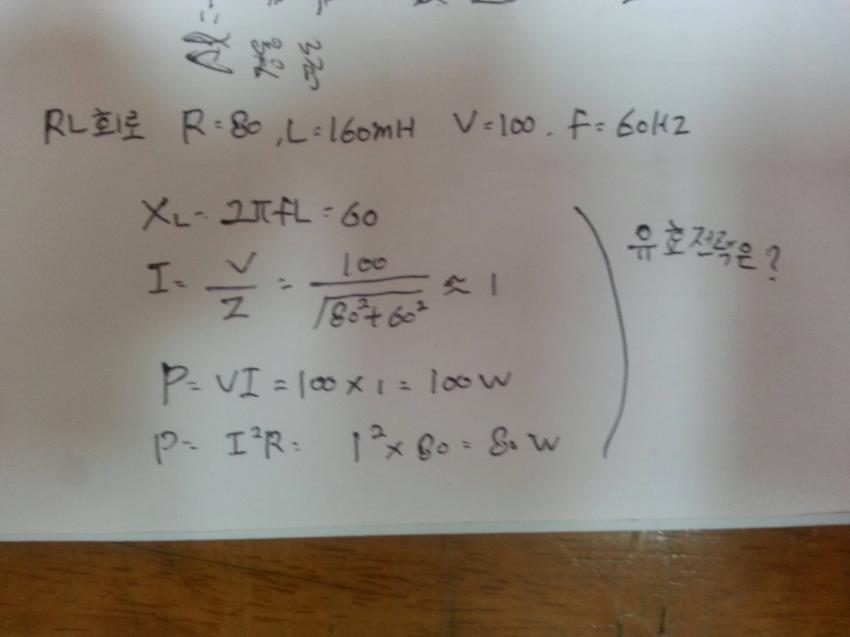 RL회로 R=80, L=160mH V=100. F=60HZ
XL = 2πfL = 60
I = V/Z = 100/√80²+60² ≈ 1
P = VI = 100 x 1 = 100W
P = I²R = 1² x 80 = 80W
유효전력은?